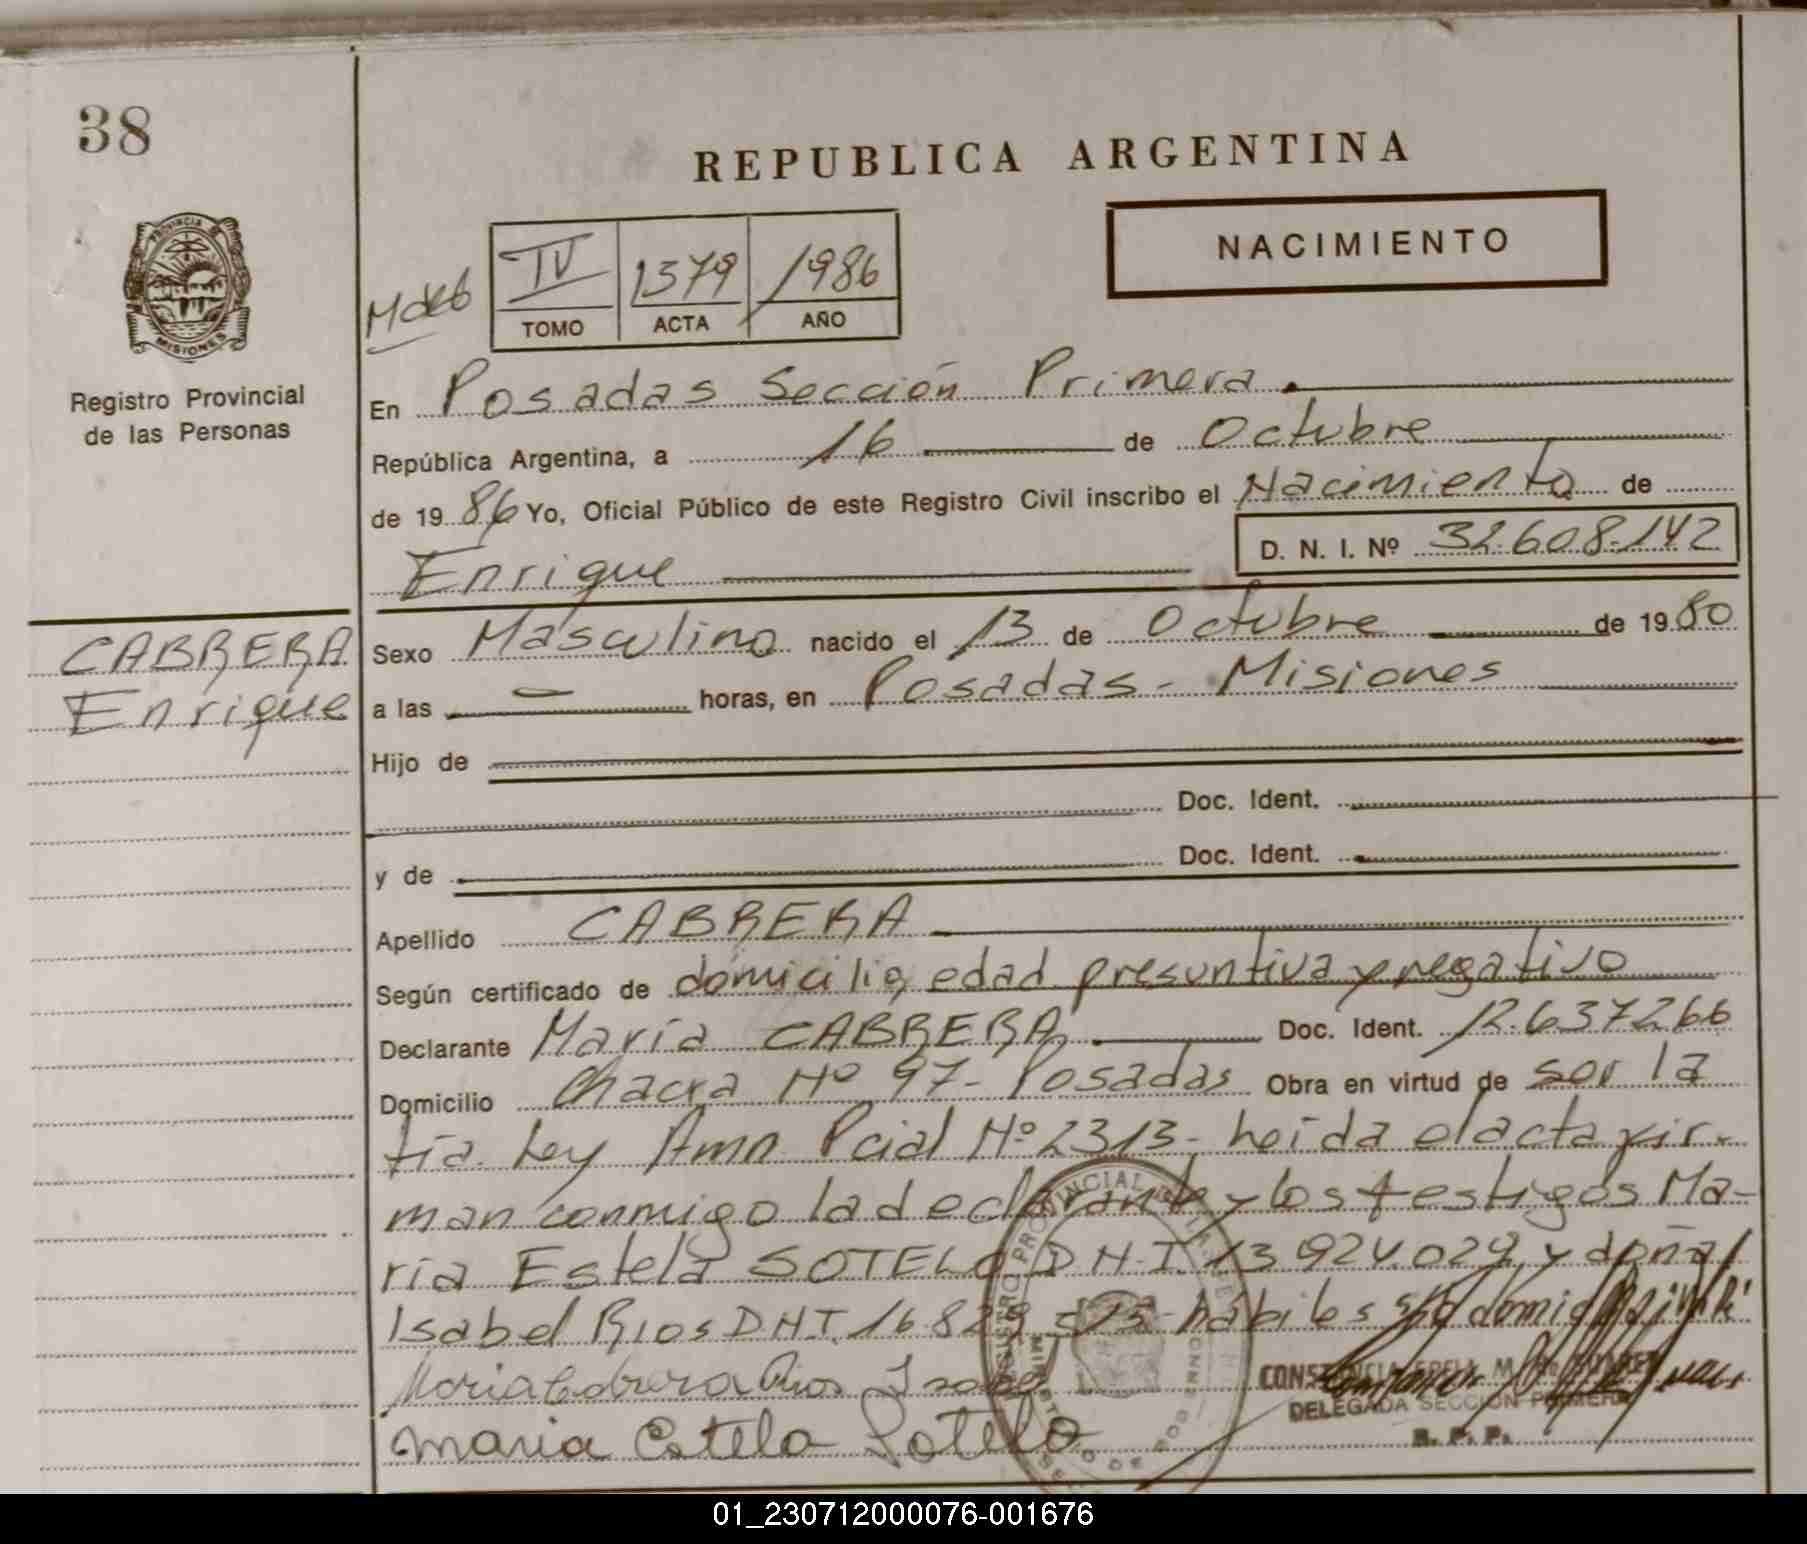 38
REPUBLICA ARGENTINA
PROVINCIA DE
MISIONES
NACIMIENTO
IV 1379 1986
TOMO ACTA AÑO
Registro Provincial
de las Personas
En Posadas Sección Primera
República Argentina, a 16 de Octubre
de 1986 Yo, Oficial Público de este Registro Civil inscribo el Nacimiento de
D. N. I. Nº 32.608.142
Enrique
CABRERA
Enrique
Sexo Masculino nacido el 13 de Octubre de 1980
a las — horas, en Posadas - Misiones
Hijo de
Doc. Ident.
y de Doc. Ident.
Apellido CABRERA
Según certificado de domicilio, edad presuntiva y negativo
Declarante María CABRERA Doc. Ident. 12.637266
Domicilio Chacra Nº 97- Posadas Obra en virtud de ser la
tía. Ley Amn. Pcial Nº 2313- leída el acta fir-
man conmigo la declarante y los testigos Ma-
ría Estela SOTELO D.N.I. 13.924.029 y doña
Isabel Rios D.N.I. 16.829.513- hábiles y domici
Maria Cabrera Rios Isabel
Maria Estela Sotelo
DELEGADA SECCION PRIMERA
R. P. P.
01_230712000076-001676